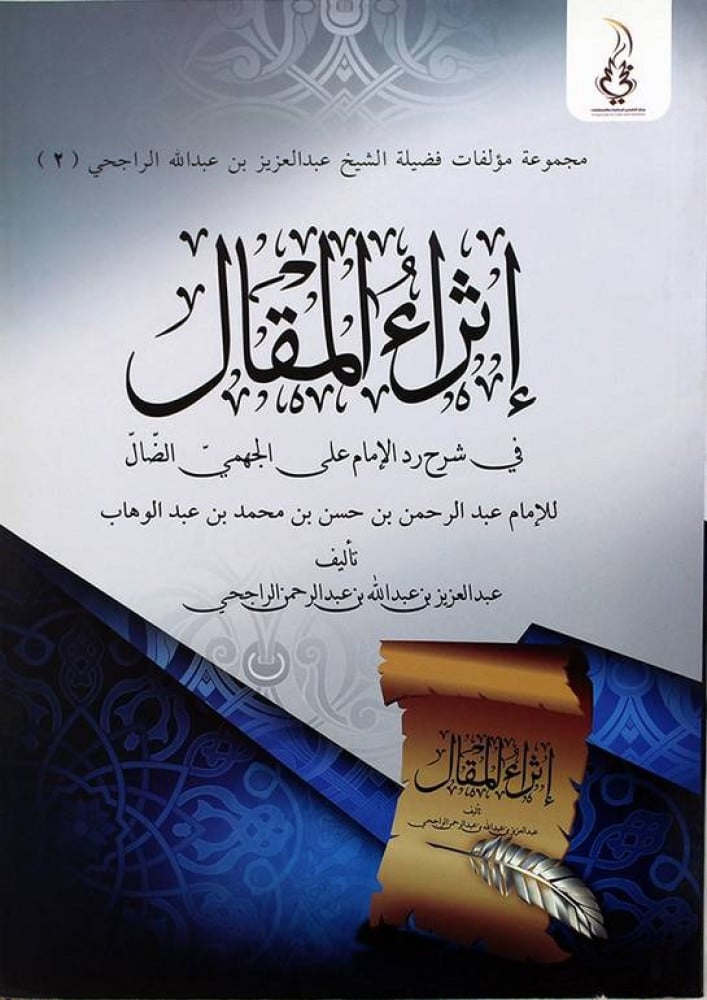 مجموعة مؤلفات فضيلة الشيخ عبدالعزيز بن عبدالله الراجحي (٢)
إثراءُ المْقَال
في شرح رد الإمام على الجهميّ الضّالّ
للإمام عبد الرحمن بن حسن بن محمد بن عبد الوهاب
تأليف
عبدالعزيز بن عبدالله بن عبدالرحمن الراجحي
إثراءُ المْقَال
تأليف
عبدالعزيز بن عبدالله بن عبدالرحمن الراجحي